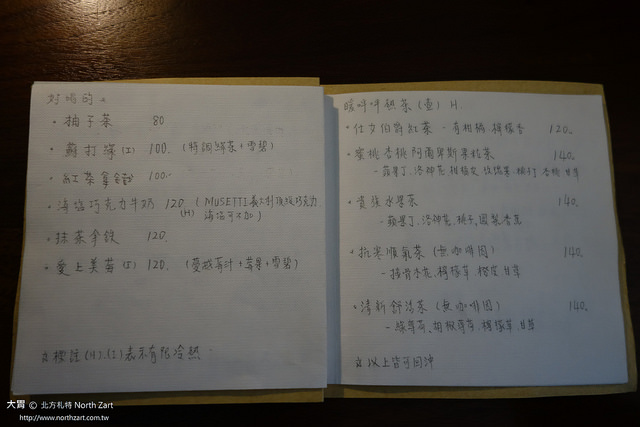 好喝的。
・柚子茶 80
・蘇打綠(I) 100. (特調綠茶+雪碧)
・紅茶拿鐵 100.
・海鹽巧克力牛奶 120. (MUSETTI義大利頂級巧克力
(H) 海鹽可不加)
・抹茶拿鐵 120.
・愛上美莓(I) 120. (蔓越莓汁+莓果+雪碧)
☆標註(H).(I)表示有限冷熱.
暖呼呼熱茶(壺) H.
・仕女伯爵紅茶-有柑橘.檸檬香 120.
・蜜桃杏桃阿爾卑斯果粒茶 140.
-蘋果丁.洛神花.柑橘皮.玫瑰果.桃子丁.杏桃.甘草
・賞味水果茶 140.
-蘋果丁.洛神花.桃子.
・ 順氣茶(無咖啡因) 140.
-接骨木花.檸檬草.橙皮.甘草
・清新舒活茶(無咖啡因) 140.
-綠薄荷.胡椒薄荷.檸檬草.甘草
☆以上皆可回沖
大胃 © 北方札特 North Zart
http://www.northzart.com.tw